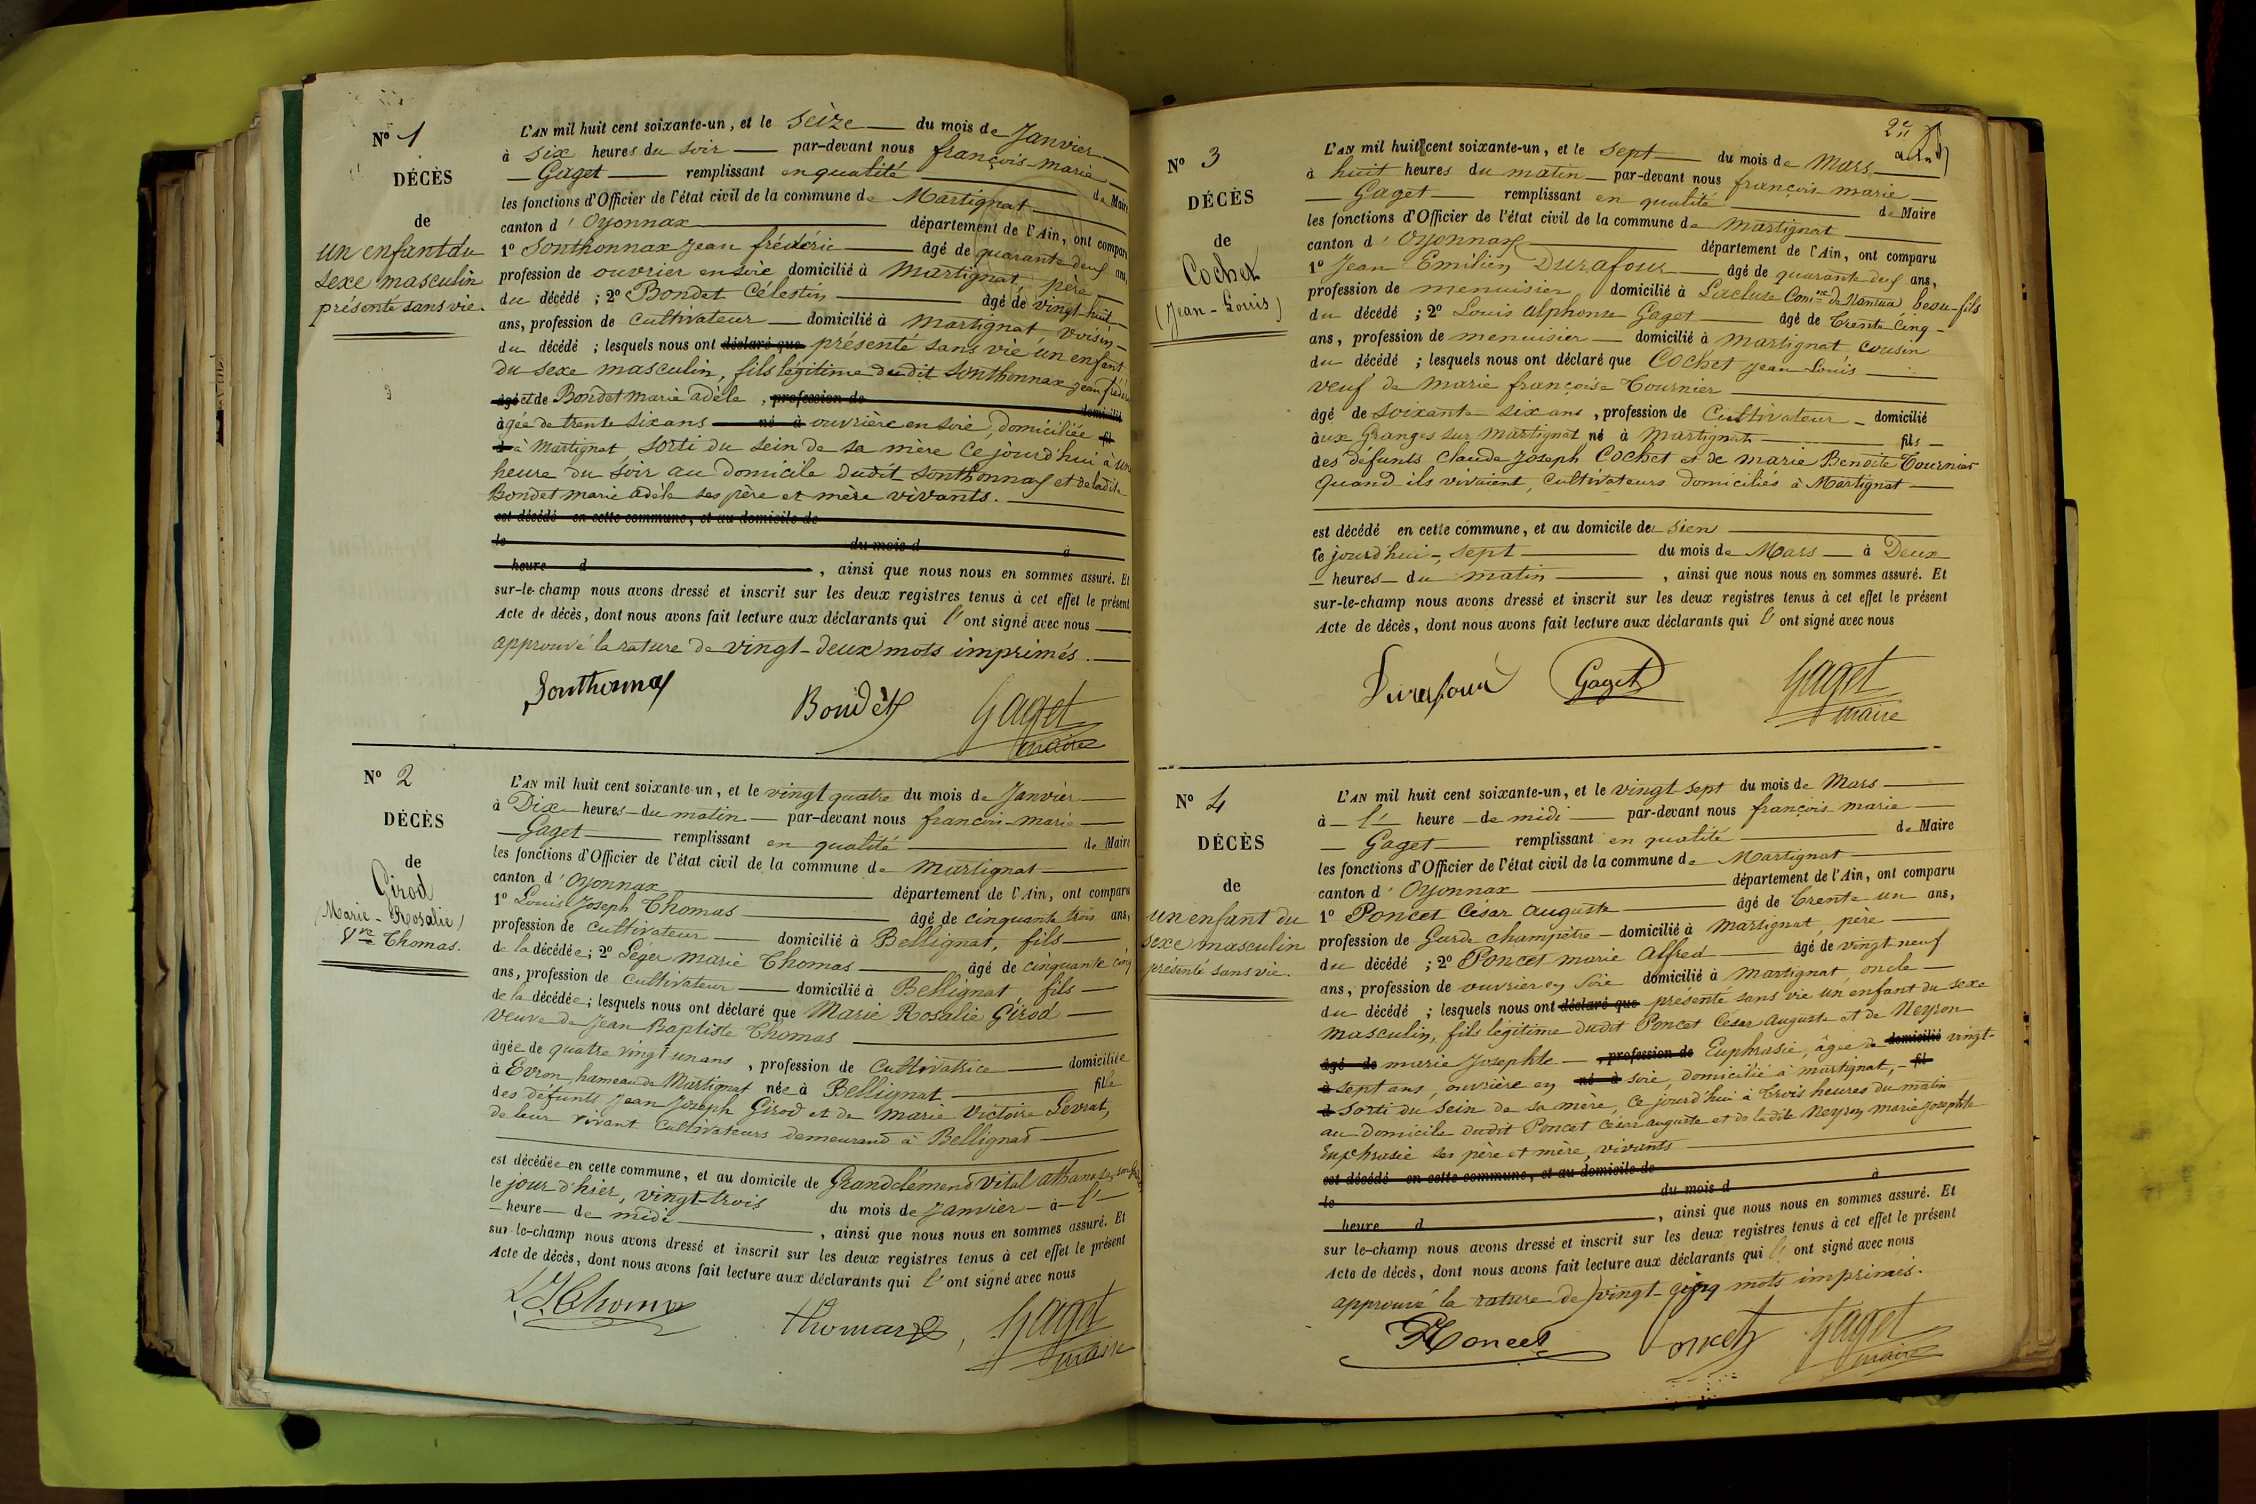 N° 1
DÉCÈS
de
un enfant du
sexe masculin
présenté sans vie.
L'AN mil huit cent soixante-un, et le seize du mois de Janvier
à six heures du soir par-devant nous françois marie
Gaget remplissant en qualité de Maire
les fonctions d'Officier de l'état civil de la commune de Martignat
canton d'Oyonnax département de l'Ain, ont comparu
1° Sonthonnax Jean frédéric âgé de quarante deux ans,
profession de ouvrier en soie domicilié à Martignat, père
du décédé ; 2° Bondet Célestin âgé de vingt-huit
ans, profession de cultivateur domicilié à Martignat, voisin
du décédé ; lesquels nous ont déclaré que présenté sans vie un enfant
du sexe masculin, fils légitime dudit Sonthonnax Jean frédéric
âgé et de Bondet Marie adèle, profession de domicilié
âgée de trente six ans né à ouvrière en soie, domiciliée fil
à à Martignat, sorti du sein de sa mère ce jourd'hui à une
heure du soir au domicile dudit Sonthonnax et de ladite
Bondet marie adèle ses père et mère vivants.
est décédé en cette commune, et au domicile de
le du mois d à
heure d , ainsi que nous nous en sommes assuré. Et
sur-le-champ nous avons dressé et inscrit sur les deux registres tenus à cet effet le présent
Acte de décès, dont nous avons fait lecture aux déclarants qui l'ont signé avec nous
approuvé la rature de vingt-deux mots imprimés.
Sonthonnax Bondet Gaget
maire
N° 2
DÉCÈS
de
Girod
(Marie-Rosalie)
Vve Thomas.
L'AN mil huit cent soixante-un, et le vingt quatre du mois de Janvier
à Dix heures du matin par-devant nous françois-marie
Gaget remplissant en qualité de Maire
les fonctions d'Officier de l'état civil de la commune de Martignat
canton d'Oyonnax département de l'Ain, ont comparu
1° Louis Joseph Thomas âgé de cinquante trois ans,
profession de cultivateur domicilié à Bellignat, fils
de la décédée ; 2° Léger marie Thomas âgé de cinquante cinq
ans, profession de cultivateur domicilié à Bellignat fils
de la décédée ; lesquels nous ont déclaré que Marie Rosalie Girod
veuve de Jean Baptiste Thomas
âgée de quatre vingt un ans, profession de cultivatrice domiciliée
à Evron, hameau de Martignat née à Bellignat fille
des défunts Jean Joseph Girod et de Marie Victoire Levrat,
de leur vivant cultivateurs demeurand à Bellignat
est décédée en cette commune, et au domicile de Grandclément Vital athanase,
le jour d'hier, vingt-trois du mois de Janvier à l'
heure de midi , ainsi que nous nous en sommes assuré. Et
sur-le-champ nous avons dressé et inscrit sur les deux registres tenus à cet effet le présent
Acte de décès, dont nous avons fait lecture aux déclarants qui l'ont signé avec nous
Thomas Gaget
maire
2e
N° 3
DÉCÈS
de
Cochet
(Jean-Louis)
L'AN mil huit cent soixante-un, et le sept du mois de Mars
à huit heures du matin par-devant nous françois marie
Gaget remplissant en qualité de Maire
les fonctions d'Officier de l'état civil de la commune de Martignat
canton d'Oyonnax département de l'Ain, ont comparu
1° Jean Emilien Durafour âgé de quarante deux ans,
profession de menuisier domicilié à Lacluse (Comne de Nantua) beau-fils
du décédé ; 2° Louis alphonse Gaget âgé de trente cinq
ans, profession de menuisier domicilié à Martignat cousin
du décédé ; lesquels nous ont déclaré que Cochet Jean Louis
veuf de marie françoise Tournier
âgé de soixante six ans, profession de Cultivateur domicilié
aux Granges sur Martignat né à Martignat fils
des défunts Claude Joseph Cochet et de marie Benoite Tournier
quand ils vivaient, cultivateurs domiciliés à Martignat
est décédé en cette commune, et au domicile de sien
ce jourd'hui, sept du mois de Mars à Deux
heures du matin , ainsi que nous nous en sommes assuré. Et
sur-le-champ nous avons dressé et inscrit sur les deux registres tenus à cet effet le présent
Acte de décès, dont nous avons fait lecture aux déclarants qui l'ont signé avec nous
Durafour Gaget Gaget
maire
N° 4
DÉCÈS
de
un enfant du
sexe masculin
présenté sans vie.
L'AN mil huit cent soixante-un, et le vingt sept du mois de Mars
à l' heure de midi par-devant nous françois marie
Gaget remplissant en qualité de Maire
les fonctions d'Officier de l'état civil de la commune de Martignat
canton d'Oyonnax département de l'Ain, ont comparu
1° Poncet César auguste âgé de trente un ans,
profession de Garde champêtre domicilié à Martignat, père
du décédé ; 2° Poncet marie alfred âgé de vingt neuf
ans, profession de ouvrier en soie domicilié à Martignat, oncle
du décédé ; lesquels nous ont déclaré que présenté sans vie un enfant du sexe
masculin, fils légitime dudit Poncet César auguste et de Neyron
âgé de marie Josephte , profession de Euphrasie, âgée de domicilié vingt-
à sept ans, ouvrière en né à soie, domicilié à martignat, fil
d sorti du sein de sa mère, ce jourd'hui à trois heures du matin
au domicile dudit Poncet César auguste et de ladite Neyron marie Josephte
Euphrasie ses père et mère, vivants
est décédé en cette commune, et au domicile de
le du mois d à
heure d , ainsi que nous nous en sommes assuré. Et
sur le-champ nous avons dressé et inscrit sur les deux registres tenus à cet effet le présent
Acte de décès, dont nous avons fait lecture aux déclarants qui l'ont signé avec nous
approuvé la rature de vingt-cinq mots imprimés.
Poncet Poncet Gaget
maire